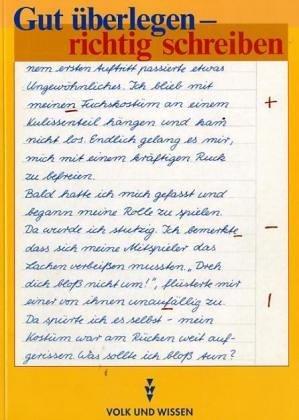 Gut überlegen –
richtig schreiben
nem ersten Auftritt passierte etwas
Ungewöhnliches. Ich blieb mit
meinen Fuchskostüm an einem +
Kulissenteil hängen und kam
nicht los. Endlich gelang es mir,
mich mit einem kräftigen Ruck
zu befreien.
Bald hatte ich mich gefasst und
begann meine Rolle zu spielen.
Da wurde ich stutzig. Ich bemerkte –
dass sich meine Mitspieler das
Lachen verbeißen mussten. „Dreh
dich bloß nicht um!", flüsterte mir
einer von ihnen unaufällig zu. |
Da spürte ich es selbst – mein
Kostüm war am Rücken weit auf-
gerissen. Was sollte ich bloß tun?
VOLK UND WISSEN